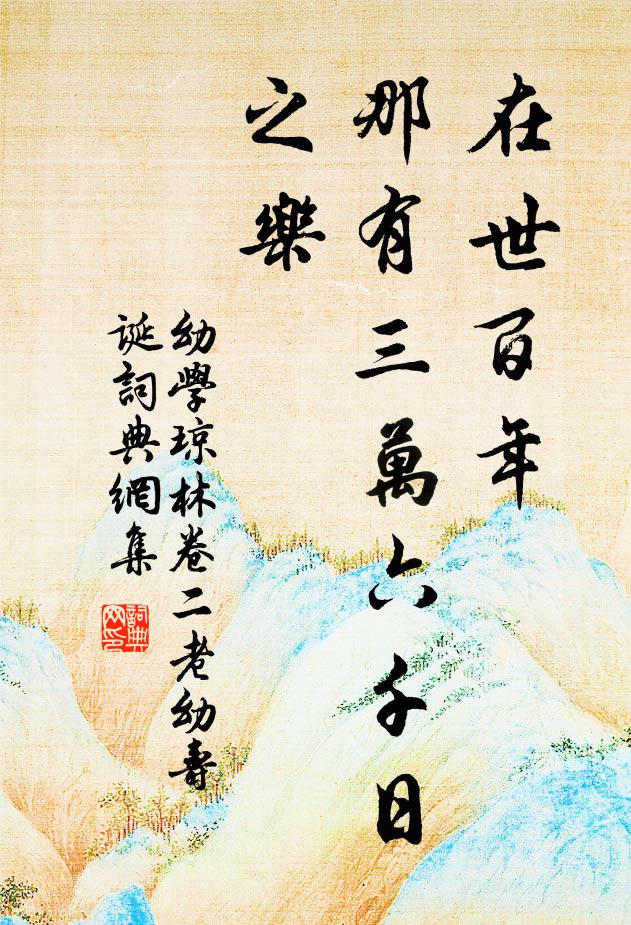 在世百年
那有三萬六千日
之樂
幼學琼林卷二老幼壽
誕詞典網集
詞典
网